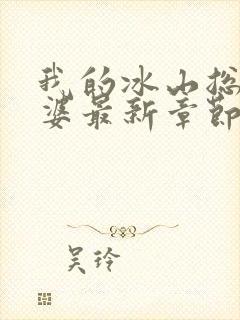 我的冰山总
婆最新章节
吴玲